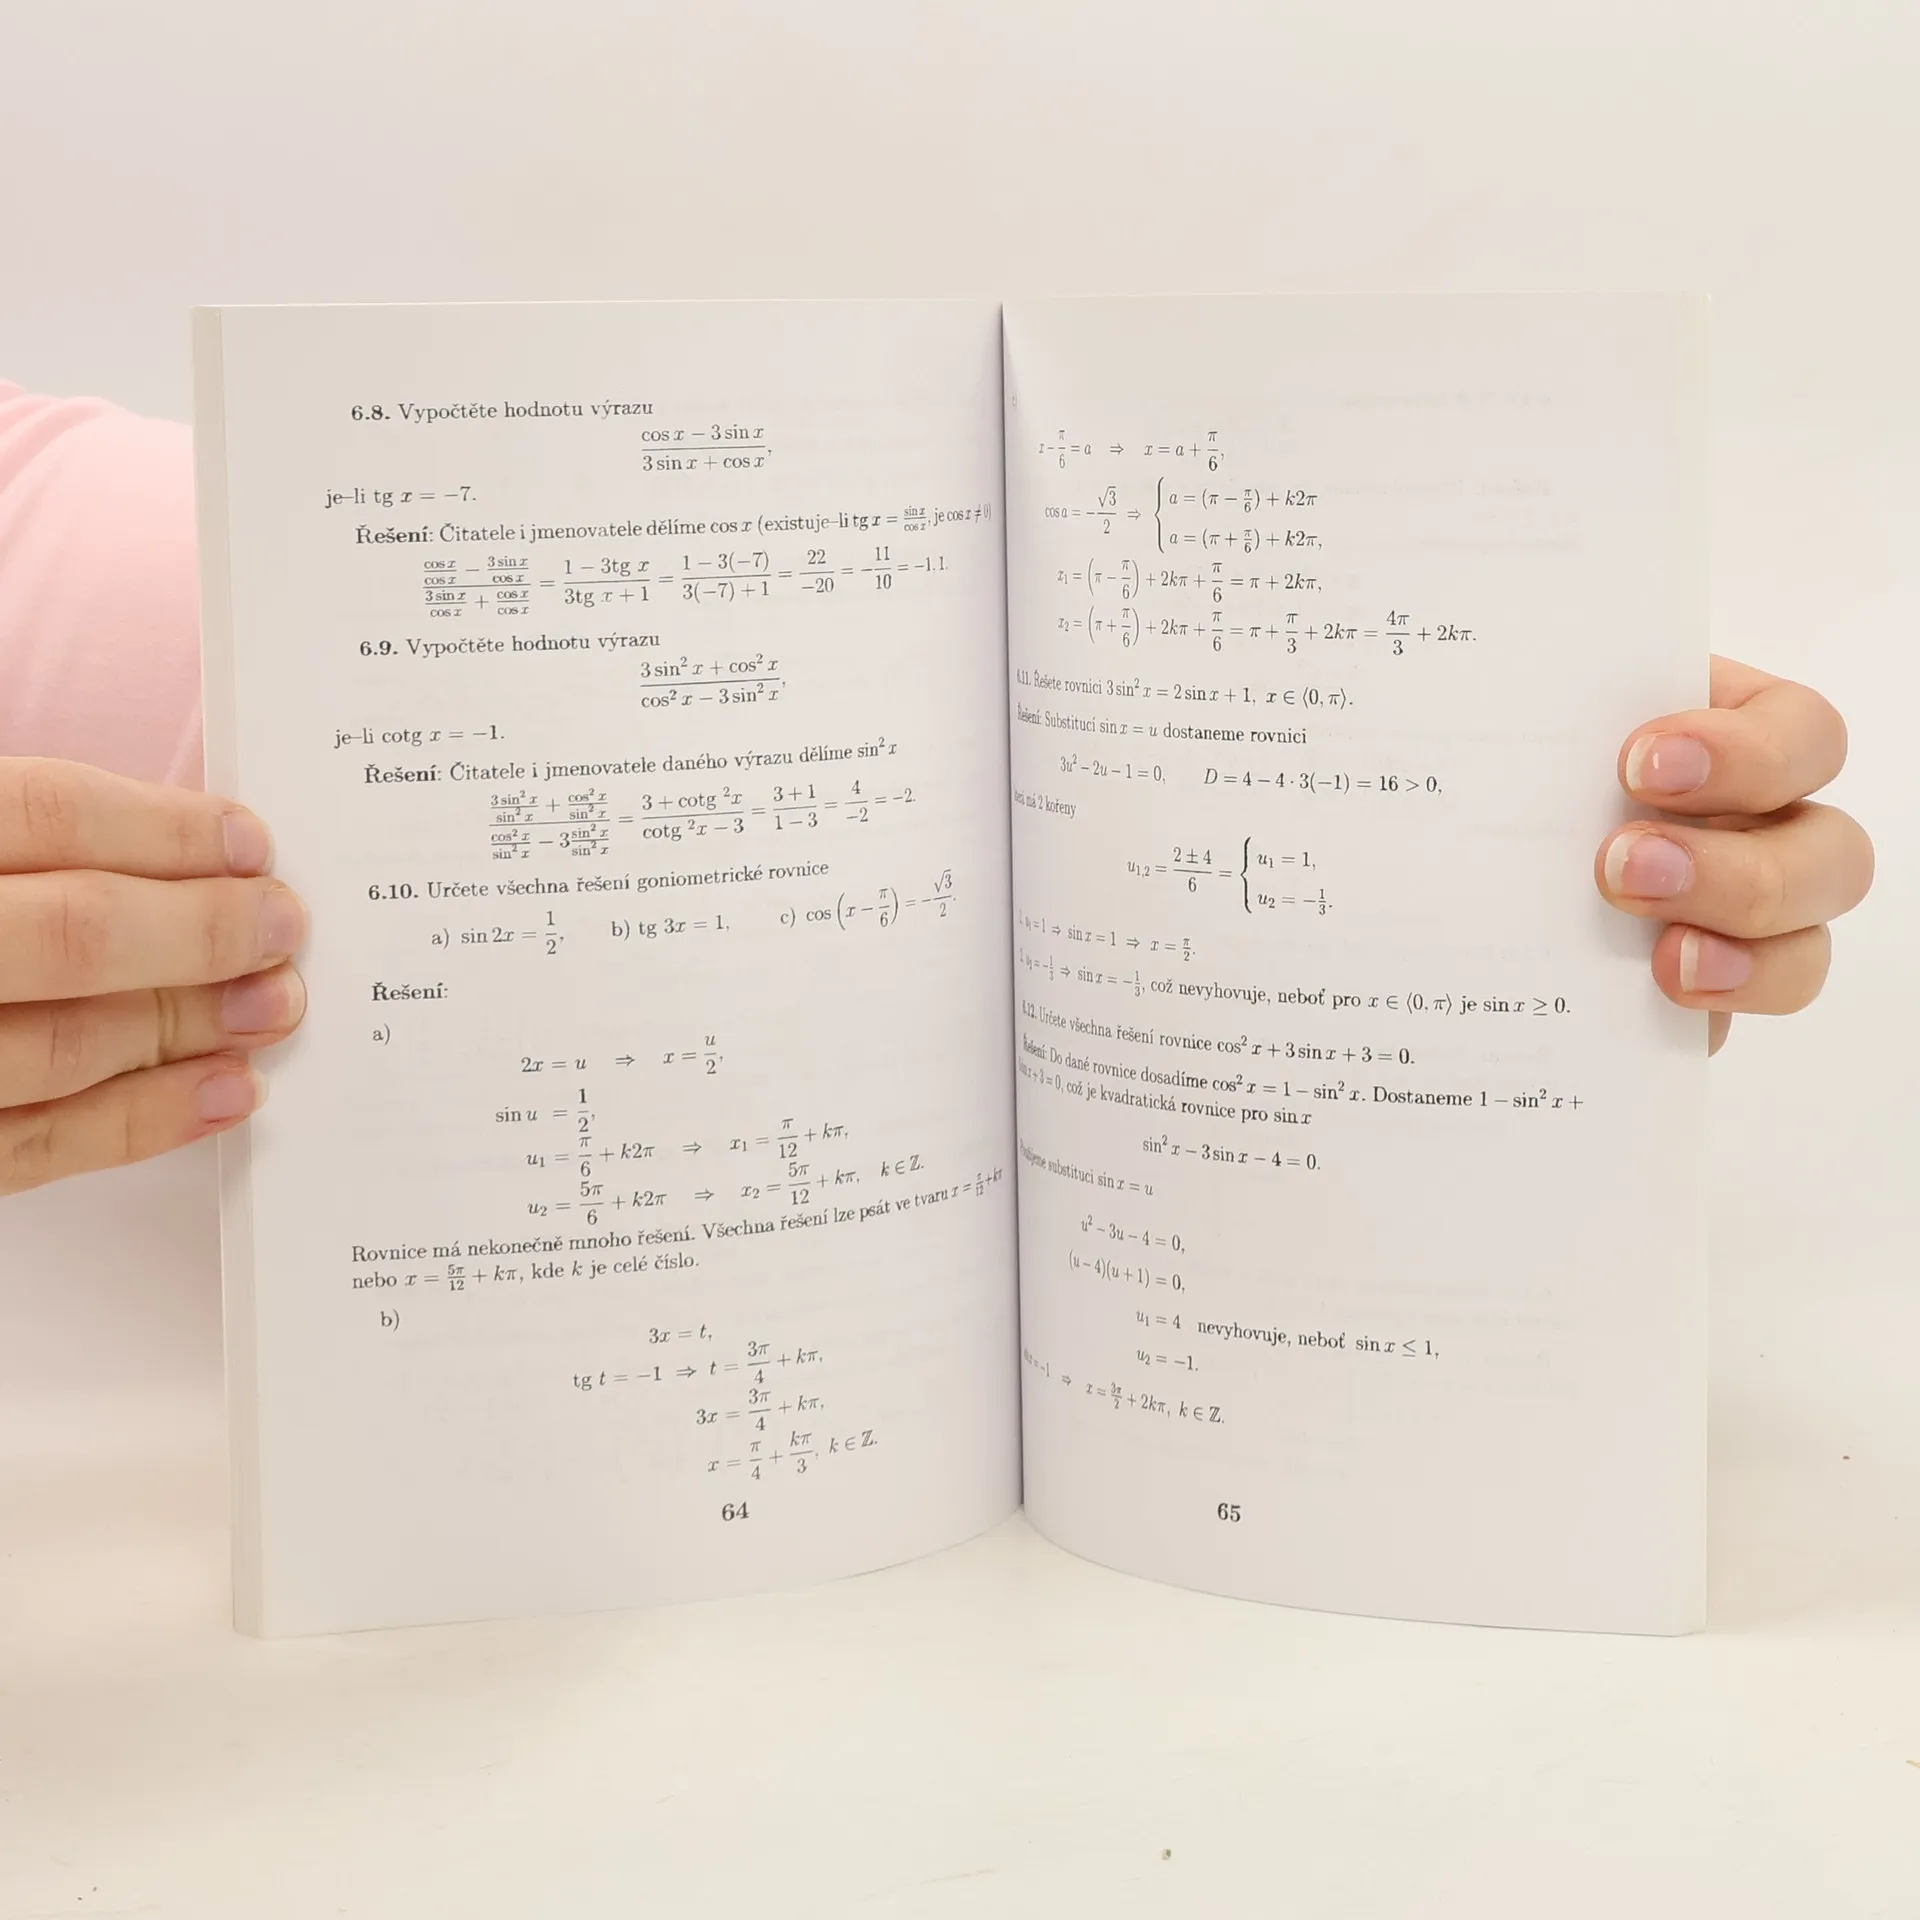 6.8. Vypočtěte hodnotu výrazu
\frac{\cos x - 3 \sin x}{3 \sin x + \cos x},
je-li tg x = −7.
Řešení: Čitatele i jmenovatele dělíme cos x (existuje-li tg x = \frac{\sin x}{\cos x}, je cos x ≠ 0)
\frac{\frac{\cos x}{\cos x} - \frac{3 \sin x}{\cos x}}{\frac{3 \sin x}{\cos x} + \frac{\cos x}{\cos x}} = \frac{1 - 3tg x}{3tg x + 1} = \frac{1 - 3(-7)}{3(-7) + 1} = \frac{22}{-20} = -\frac{11}{10} = −1,1.
6.9. Vypočtěte hodnotu výrazu
\frac{3 \sin^2 x + \cos^2 x}{\cos^2 x - 3 \sin^2 x},
je-li cotg x = −1.
Řešení: Čitatele i jmenovatele daného výrazu dělíme sin² x
\frac{\frac{3 \sin^2 x}{\sin^2 x} + \frac{\cos^2 x}{\sin^2 x}}{\frac{\cos^2 x}{\sin^2 x} - 3\frac{\sin^2 x}{\sin^2 x}} = \frac{3 + cotg ^2x}{cotg ^2x - 3} = \frac{3 + 1}{1 - 3} = \frac{4}{-2} = −2.
6.10. Určete všechna řešení goniometrické rovnice
a) sin 2x = \frac{1}{2}, b) tg 3x = 1, c) cos (x − \frac{π}{6}) = −\frac{\sqrt{3}}{2}.
Řešení:
a)
2x = u ⇒ x = \frac{u}{2},
sin u = \frac{1}{2},
u₁ = \frac{π}{6} + k2π ⇒ x₁ = \frac{π}{12} + kπ,
u₂ = \frac{5π}{6} + k2π ⇒ x₂ = \frac{5π}{12} + kπ, k ∈ ℤ.
Rovnice má nekonečně mnoho řešení. Všechna řešení lze psát ve tvaru x = \frac{π}{12} + kπ
nebo x = \frac{5π}{12} + kπ, kde k je celé číslo.
b)
3x = t,
tg t = −1 ⇒ t = \frac{3π}{4} + kπ,
3x = \frac{3π}{4} + kπ,
x = \frac{π}{4} + \frac{kπ}{3}, k ∈ ℤ.
64
x − \frac{π}{6} = a ⇒ x = a + \frac{π}{6},
cos a = −\frac{\sqrt{3}}{2} ⇒ { a = (π − \frac{π}{6}) + k2π
a = (π + \frac{π}{6}) + k2π,
x₁ = (π − \frac{π}{6}) + 2kπ + \frac{π}{6} = π + 2kπ,
x₂ = (π + \frac{π}{6}) + 2kπ + \frac{π}{6} = π + \frac{π}{3} + 2kπ = \frac{4π}{3} + 2kπ.
6.11. Řešete rovnici 3 sin² x = 2 sin x + 1, x ∈ ⟨0, π⟩.
Řešení: Substitucí sin x = u dostaneme rovnici
3u² − 2u − 1 = 0, D = 4 − 4 · 3(−1) = 16 > 0,
má 2 kořeny
u₁,₂ = \frac{2 ± 4}{6} = { u₁ = 1,
u₂ = −\frac{1}{3}.
1. u₁ = 1 ⇒ sin x = 1 ⇒ x = \frac{π}{2}.
2. u₂ = −\frac{1}{3} ⇒ sin x = −\frac{1}{3}, což nevyhovuje, neboť pro x ∈ ⟨0, π⟩ je sin x ≥ 0.
6.12. Určete všechna řešení rovnice cos² x + 3 sin x + 3 = 0.
Řešení: Do dané rovnice dosadíme cos² x = 1 − sin² x. Dostaneme 1 − sin² x +
x + 3 = 0, což je kvadratická rovnice pro sin x
sin² x − 3 sin x − 4 = 0.
substituci sin x = u
u² − 3u − 4 = 0,
(u − 4)(u + 1) = 0,
u₁ = 4 nevyhovuje, neboť sin x ≤ 1,
u₂ = −1.
sin x = −1 ⇒ x = \frac{3π}{2} + 2kπ, k ∈ ℤ.
65